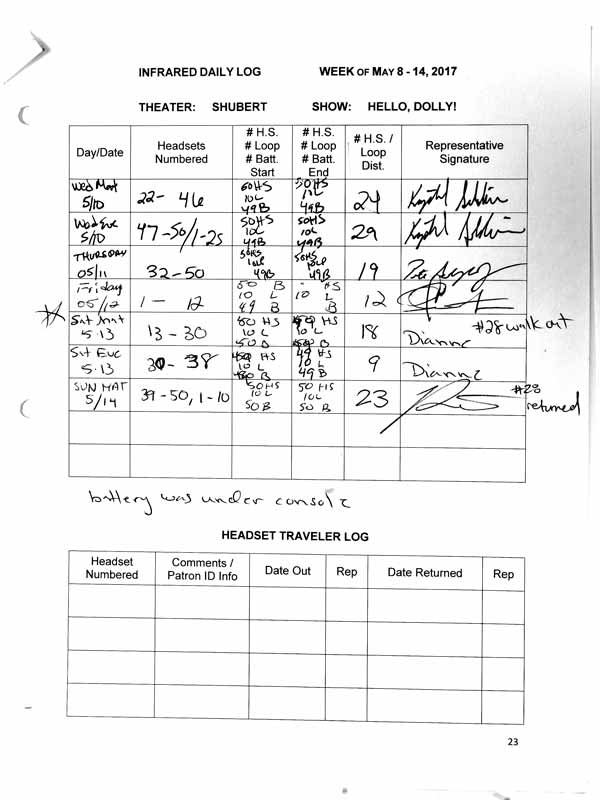 INFRARED DAILY LOG WEEK OF MAY 8 - 14, 2017
THEATER: SHUBERT SHOW: HELLO, DOLLY!
Day/Date
Headsets Numbered
# H.S. # Loop # Batt. Start
# H.S. # Loop # Batt. End
# H.S. / Loop Dist.
Representative Signature
Wed Mat 5/10 22- 46 50HS 10L 49B 50HS 10L 49B 24
Wed Eve 5/10 47-50/1-25 50HS 10L 49B 50HS 10L 49B 29
THURSDAY 05/11 32-50 50HS 10LP 49B 50HS 10LP 49B 19
Friday 05/12 1 - 12 50 B 10 L 49 B HS 10 L B 12
Sat Mat 5.13 13 - 30 50 HS 10 L 50 B HS 10 L B 18 Dianne #28 walk out
Sat Eve 5.13 30 - 38 HS 10 L B 49 HS 10 L 49 B 9 Dianne
SUN MAT 5/14 39-50, 1-10 50HS 10L 50B 50HS 10L 50 B 23 #28 returned
battery was under console
HEADSET TRAVELER LOG
Headset Numbered
Comments / Patron ID Info
Date Out
Rep
Date Returned
Rep
23